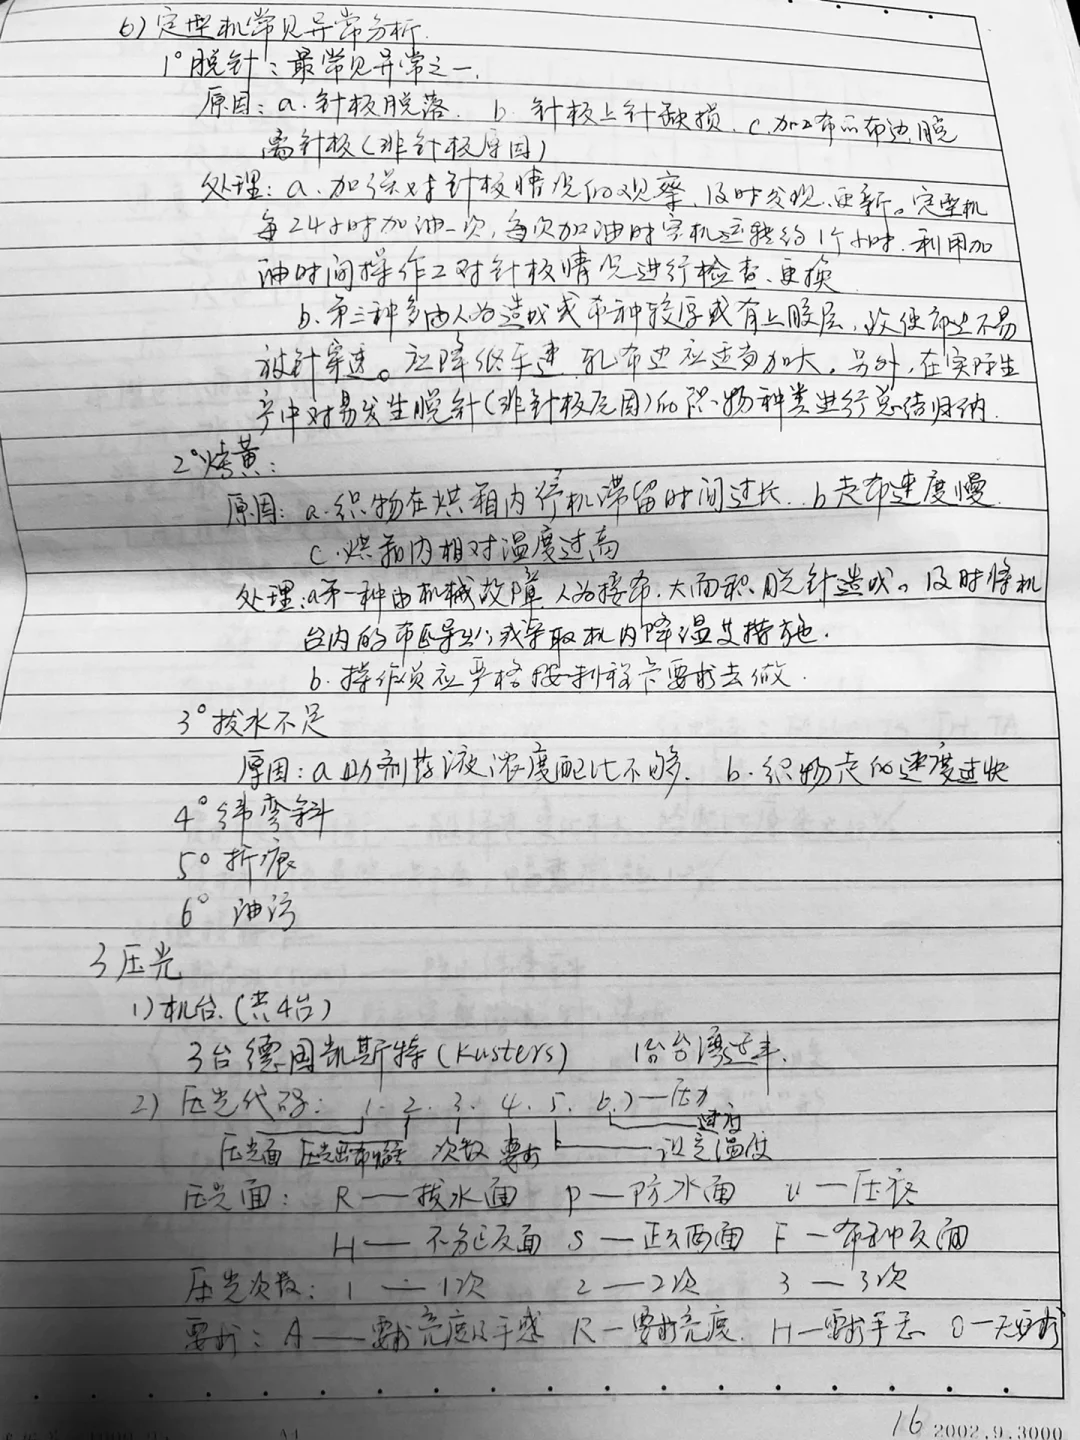 6) 定型机常见异常分析.
1° 脱针：最常见异常之一.
原因：a. 针板脱落. b. 针板上针缺损. c. 加工布的布边脱
离针板(非针板原因)
处理：a. 加强对针板情况的观察，及时发现、更新。定型机
每24小时加油一次，每次加油时空机运转约1个小时. 利用加
油时间操作工对针板情况进行检查、更换
b. 第三种多由人为造成或布种较厚或有上胶层，致使布边不易
被针穿透。应降低车速，轧布边应适当加大。另外，在实际生
产中对易发生脱针(非针板原因)的织物种类进行总结归纳.
2° 烤黄：
原因：a. 织物在烘箱内停机滞留时间过长. b. 走布速度慢
c. 烘箱内相对温度过高
处理：a. 第一种由机械故障、人为接布、大面积脱针造成。及时将机
台内的布匹导出，或采取机内降温措施.
b. 操作员应严格按制程卡要求去做.
3° 拨水不足
原因：a. 助剂药液浓度配比不够. b. 织物走的速度过快
4° 纬弯斜
5° 折痕
6° 油污
3 压光
1) 机台. (共4台)
3台德国凯斯特(Kusters) 1台台湾造丰.
2) 压光代码： 1. 2. 3. 4. 5. 6. 7—压力
速度
压光面 次数 要求 设定温度
压光面： R—拨水面 P—防水面 U—压底
H—不分正反面 S—正反两面 F—布种反面
压光次数： 1—1次 2—2次 3—3次
要求： A—要求亮度及手感 R—要求亮度. H—要求手感 0—无要求
16 2002.9.3000